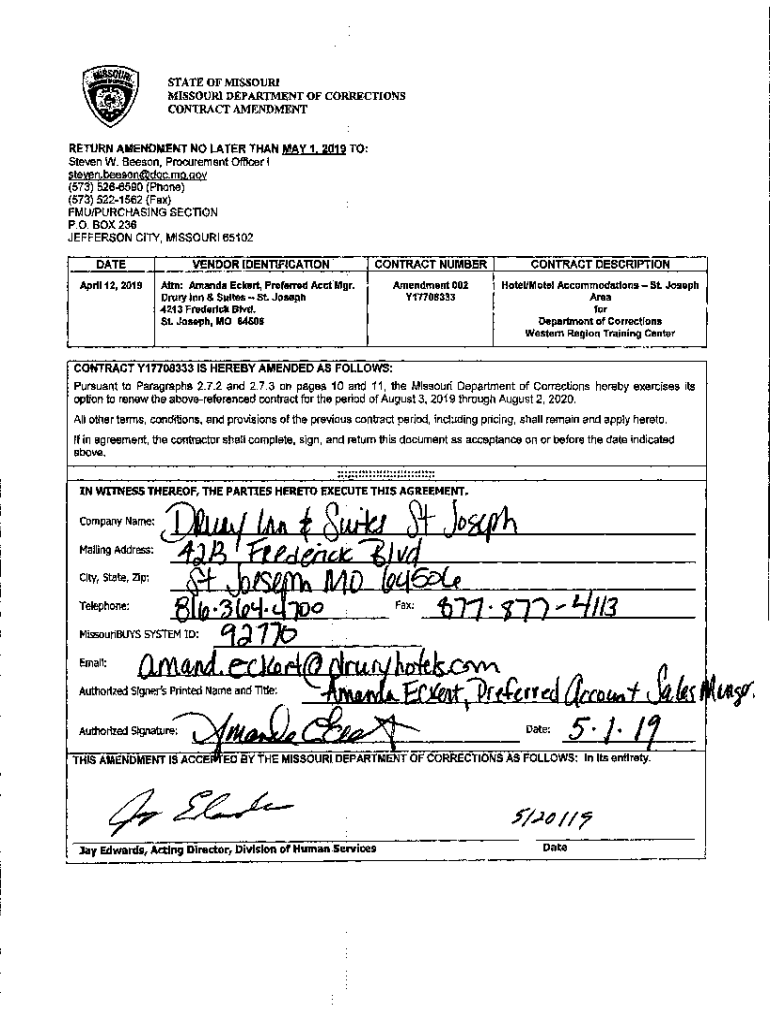 MISSOURI
STATE OF MISSOURI
MISSOURI DEPARTMENT OF CORRECTIONS
CONTRACT AMENDMENT
RETURN AMENDMENT NO LATER THAN MAY 1, 2019 TO:
Steven W. Beeson, Procurement Officer I
steven.beeson@doc.mo.gov
(573) 526-6590 (Phone)
(573) 522-1562 (Fax)
FMU/PURCHASING SECTION
P.O. BOX 236
JEFFERSON CITY, MISSOURI 65102
DATE VENDOR IDENTIFICATION CONTRACT NUMBER CONTRACT DESCRIPTION
April 12, 2019 Attn: Amanda Eckert, Preferred Acct Mgr. Amendment 002 Hotel/Motel Accommodations – St. Joseph
Drury Inn & Suites – St. Joseph Y17708333 Area
4213 Frederick Blvd. for
St. Joseph, MO 64506 Department of Corrections
Western Region Training Center
CONTRACT Y17708333 IS HEREBY AMENDED AS FOLLOWS:
Pursuant to Paragraphs 2.7.2 and 2.7.3 on pages 10 and 11, the Missouri Department of Corrections hereby exercises its
option to renew the above-referenced contract for the period of August 3, 2019 through August 2, 2020.
All other terms, conditions, and provisions of the previous contract period, including pricing, shall remain and apply hereto.
If in agreement, the contractor shall complete, sign, and return this document as acceptance on or before the date indicated
above.
IN WITNESS THEREOF, THE PARTIES HERETO EXECUTE THIS AGREEMENT.
Company Name: Drury Inn & Suites St Joseph
Mailing Address: 4213 Frederick Blvd
City, State, Zip: St Joseph MO 64506
Telephone: 816-364-4700 Fax: 877-877-4113
MissouriBUYS SYSTEM ID: 92776
Email: amand.eckert@druryhotels.com
Authorized Signer's Printed Name and Title: Amanda Eckert, Preferred Account Sales Manager
Authorized Signature: Amanda Date: 5-1-19
THIS AMENDMENT IS ACCEPTED BY THE MISSOURI DEPARTMENT OF CORRECTIONS AS FOLLOWS: In its entirety.
5/20/19
Jay Edwards, Acting Director, Division of Human Services Date